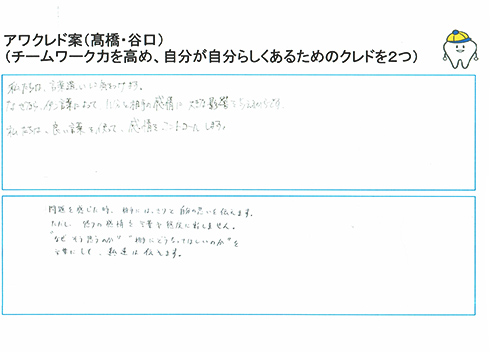 アワクレド案（髙橋・谷口）
（チームワーク力を高め、自分が自分らしくあるためのクレドを２つ）
私たちは、言葉遣いに気をつけます。
なぜなら、言葉によって 相手の感情に 大きな影響を与えるからです。
私たちは、良い言葉を使って、感情をコントロールします。
問題を感じた時、相手にはっきりと自分の思いを伝えます。
ただし、怒りの感情を言葉や態度に出しません。
"なぜそう思うのか" "相手にどうなってほしいのか"を
言葉にして、私達は伝えます。